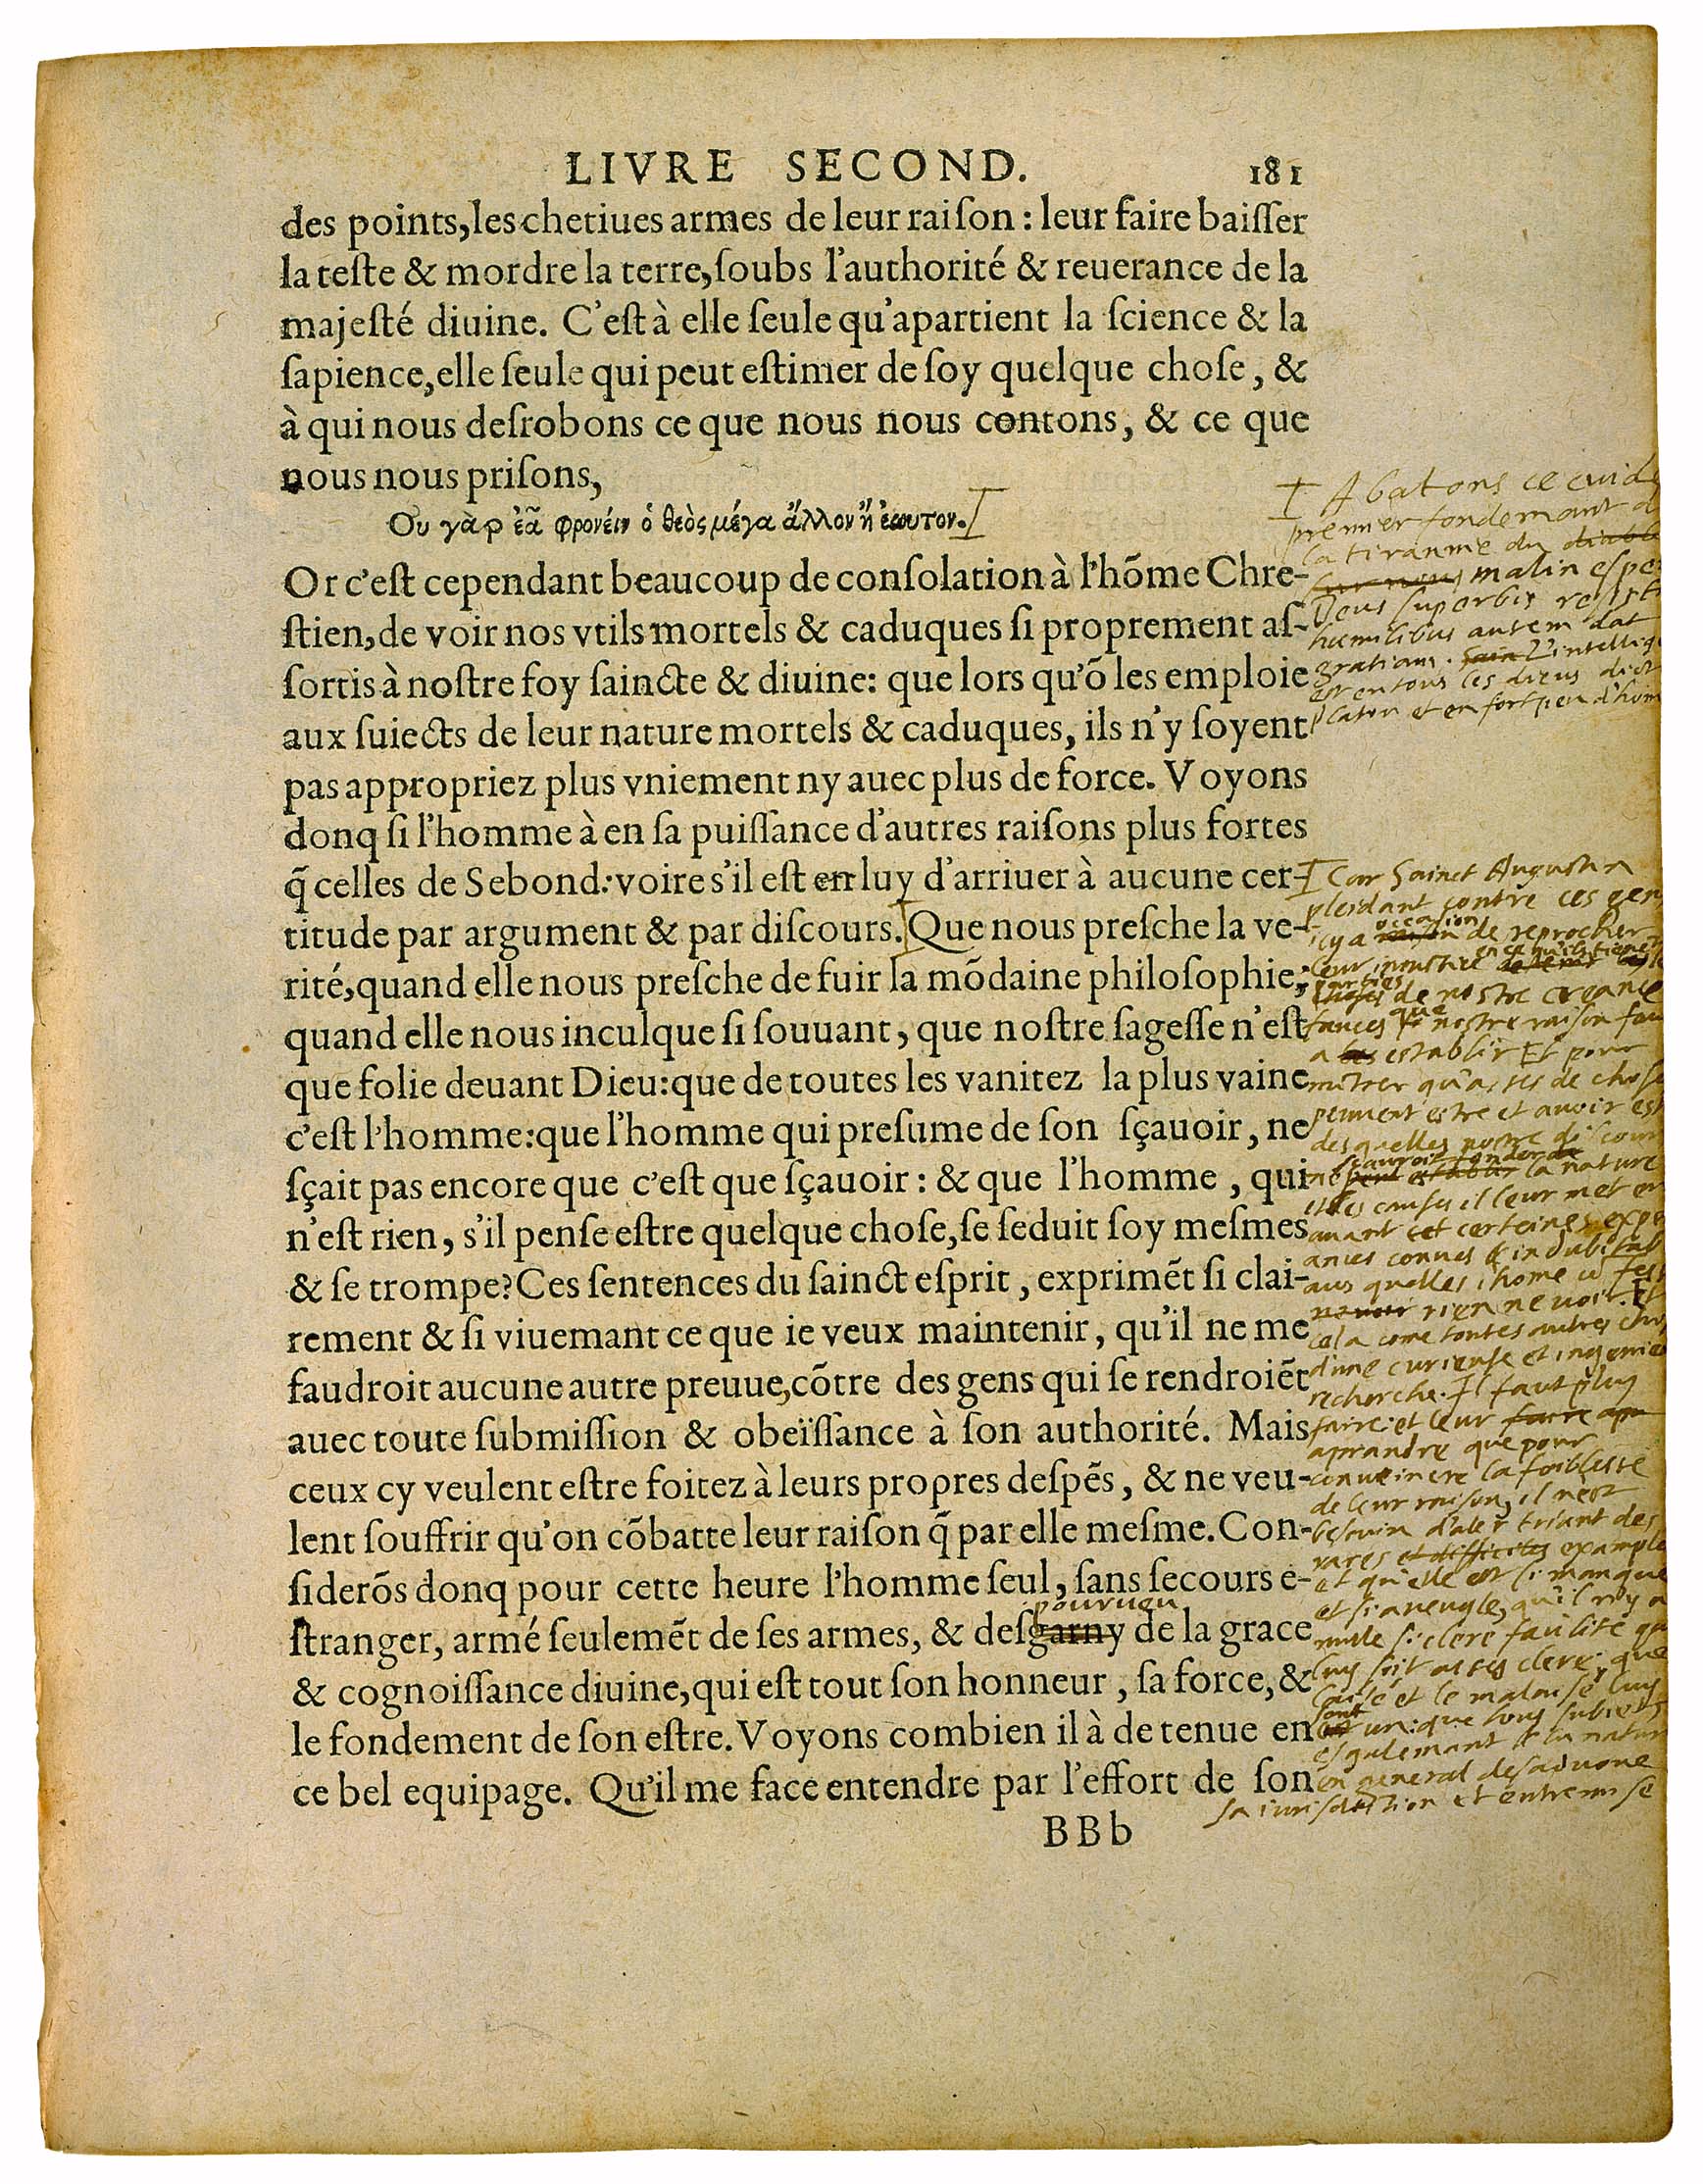 LIVRE SECOND. 181
des points, les chetiues armes de leur raiſon : leur faire baiſſer
la teſte & mordre la terre, ſoubs l'authorité & reuerance de la
majeſté diuine. C'eſt à elle ſeule qu'apartient la ſcience & la
ſapience, elle ſeule qui peut eſtimer de ſoy quelque choſe, &
à qui nous deſrobons ce que nous nous contons, & ce que
nous nous priſons,
Ου γὰρ ἐᾶ φρονέιν ὁ θεὸς μέγα ἄλλον ἢ ἑωυτον.
Or c'eſt cependant beaucoup de conſolation à l'hõme Chre-
ſtien, de voir nos vtils mortels & caduques ſi proprement aſ-
ſortis à noſtre foy ſaincte & diuine: que lors qu'õ les emploie
aux ſuiects de leur nature mortels & caduques, ils n'y ſoyent
pas appropriez plus vniement ny auec plus de force. Voyons
donq ſi l'homme à en ſa puiſſance d'autres raiſons plus fortes
q̃ celles de Sebond: voire s'il eſt en luy d'arriuer à aucune cer-
titude par argument & par diſcours. Que nous preſche la ve-
rité, quand elle nous preſche de fuir la mõdaine philoſophie;
quand elle nous inculque ſi ſouuant, que noſtre ſageſſe n'eſt
que folie deuant Dieu: que de toutes les vanitez la plus vaine
c'eſt l'homme: que l'homme qui preſume de ſon ſçauoir, ne
ſçait pas encore que c'eſt que ſçauoir : & que l'homme, qui
n'eſt rien, s'il penſe eſtre quelque choſe, ſe ſeduit ſoy meſmes
& ſe trompe? Ces ſentences du ſainct eſprit, exprimẽt ſi clai-
rement & ſi viuemant ce que ie veux maintenir, qu'il ne me
faudroit aucune autre preuue, cõtre des gens qui ſe rendroiẽt
auec toute ſubmiſſion & obeïſſance à ſon authorité. Mais
ceux cy veulent eſtre foitez à leurs propres deſpẽs, & ne veu-
lent ſouffrir qu'on cõbatte leur raiſon q̃ par elle meſme. Con-
ſiderõs donq pour cette heure l'homme ſeul, ſans ſecours e-
pourueu
ſtranger, armé ſeulemẽt de ſes armes, & deſgarny de la grace
& cognoiſſance diuine, qui eſt tout ſon honneur, ſa force, &
le fondement de ſon eſtre. Voyons combien il à de tenue en
ce bel equipage. Qu'il me face entendre par l'effort de ſon
BBb
Abatons ce cuid
premier fondemant d
la tirannie du diable
malin espe
Deus superbis resist
humilibus autem dat
gratiam. L'intellig
est en tous les dieus dict
Platon et en fort peu d'hom
Car Sainct Augustin
pleidant contre ces gen
occasion
il y a de reprocher
leur iniustice en ce qu'ils tienent
parties
de nostre creance
fauces que nostre raison fau
a establir Et pour
mõtrer qu'asses de chose
peuuent estre et auoir est
des quelles nostre discour
sçauroit fonder
ne la nature
et les causes il leur met en
auant certeines expe
ances connues & indubitab
aus quelles l'home
rien ne voir. Et
cela come toutes autres cho
d'une curieuse et ingenie
recherche. Il faut plus
faire: et leur
aprandre que pour
conveincre la foiblesse
de leur raison, il n'est
besouin d'aler triant des
rares et difficiles example
et qu'elle est si manque
et si aueugle, qu'il n'y a
nulle si clere facilité qui
luy soit asses clere: que
l'aise et le malaisé luy
sont
un: que tous subiects
esgalemant & la natur
en general desaduoue
sa iurisdiction et entremise